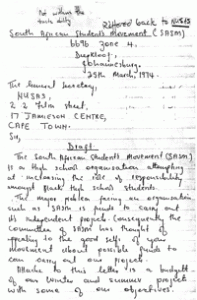 referred back to NUSAS
South African Students Movement (SASM)
669b Zone 4,
Diepkloof,
Johannesburg.
25th March, 1974.
The General Secretary,
NUSAS,
2 2 Film street,
17 Jamieson Centre,
CAPE TOWN.
Sir,
Draft
The South African Students Movement (SASM)
is a High School organisation attempting
at increasing the role of responsibility
amongst Black High school students.
The major problem facing an organisation
such as SASM is funds to carry out
its independent projects. Consequently the
Committee of SASM has thought of
appealing to the good selfs of your
movement about possible funds to
carry out our project.
Attache to this letter is a budget
of our winter and summer project
with some of our objectives.